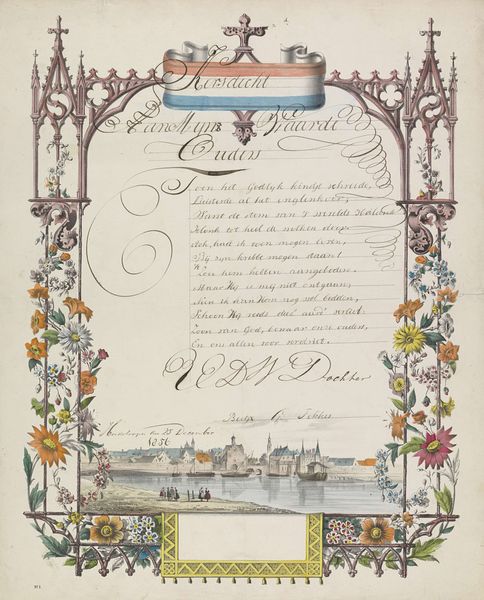 Kersdicht
Aan Mijne Waarde
Ouders
Toen het Godlijk kindje schreide,
Luisterde al het englenkoor,
Want de stem van 's werelds Heiland
Klonk tot heel de wolken door.
Ach, had ik toen mogen leven,
Bij zijn kribbe mogen staan!
'k Zou hem hebben aangeboden.
Maar Hij is mij niet ontgaan,
Neen ik kan Hem nog wel bidden,
Schoon Hij reeds dees aard' verliet.
Zoon van God, bewaar onze ouders,
En ons allen voor verdriet.
UEDW Dochter
den 25 December
1856